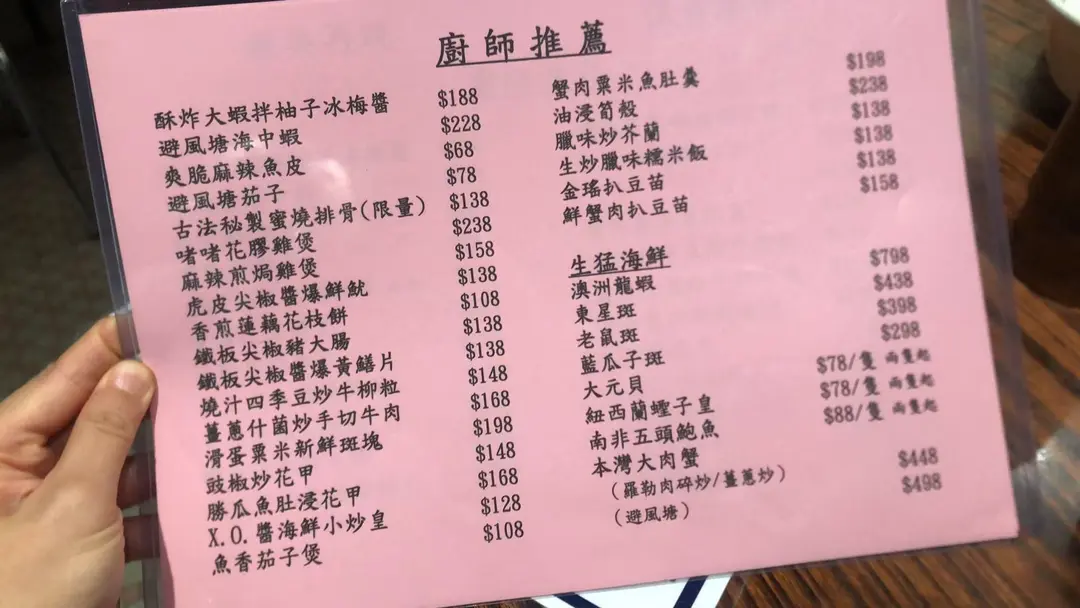 廚師推薦
酥炸大蝦拌柚子冰梅醬 $188
避風塘海中蝦 $228
爽脆麻辣魚皮 $68
避風塘茄子 $78
古法秘製蜜燒排骨(限量) $138
啫啫花膠雞煲 $238
麻辣煎焗雞煲 $158
虎皮尖椒醬爆鮮魷 $138
香煎蓮藕花枝餅 $108
鐵板尖椒豬大腸 $138
鐵板尖椒醬爆黃鱔片 $138
燒汁四季豆炒牛柳粒 $148
薑蔥什菌炒手切牛肉 $168
滑蛋粟米新鮮斑塊 $198
豉椒炒花甲 $148
勝瓜魚肚浸花甲 $168
X.O.醬海鮮小炒皇 $128
魚香茄子煲 $108
蟹肉粟米魚肚羹 $198
油浸筍殼 $238
臘味炒芥蘭 $138
生炒臘味糯米飯 $138
金瑤扒豆苗 $138
鮮蟹肉扒豆苗 $158
生猛海鮮
澳洲龍蝦 $798
東星斑 $438
老鼠斑 $398
藍瓜子斑 $298
大元貝 $78/隻 兩隻起
紐西蘭蟶子皇 $78/隻 兩隻起
南非五頭鮑魚 $88/隻 兩隻起
本灣大肉蟹
(羅勒肉碎炒/薑蔥炒) $448
(避風塘) $498